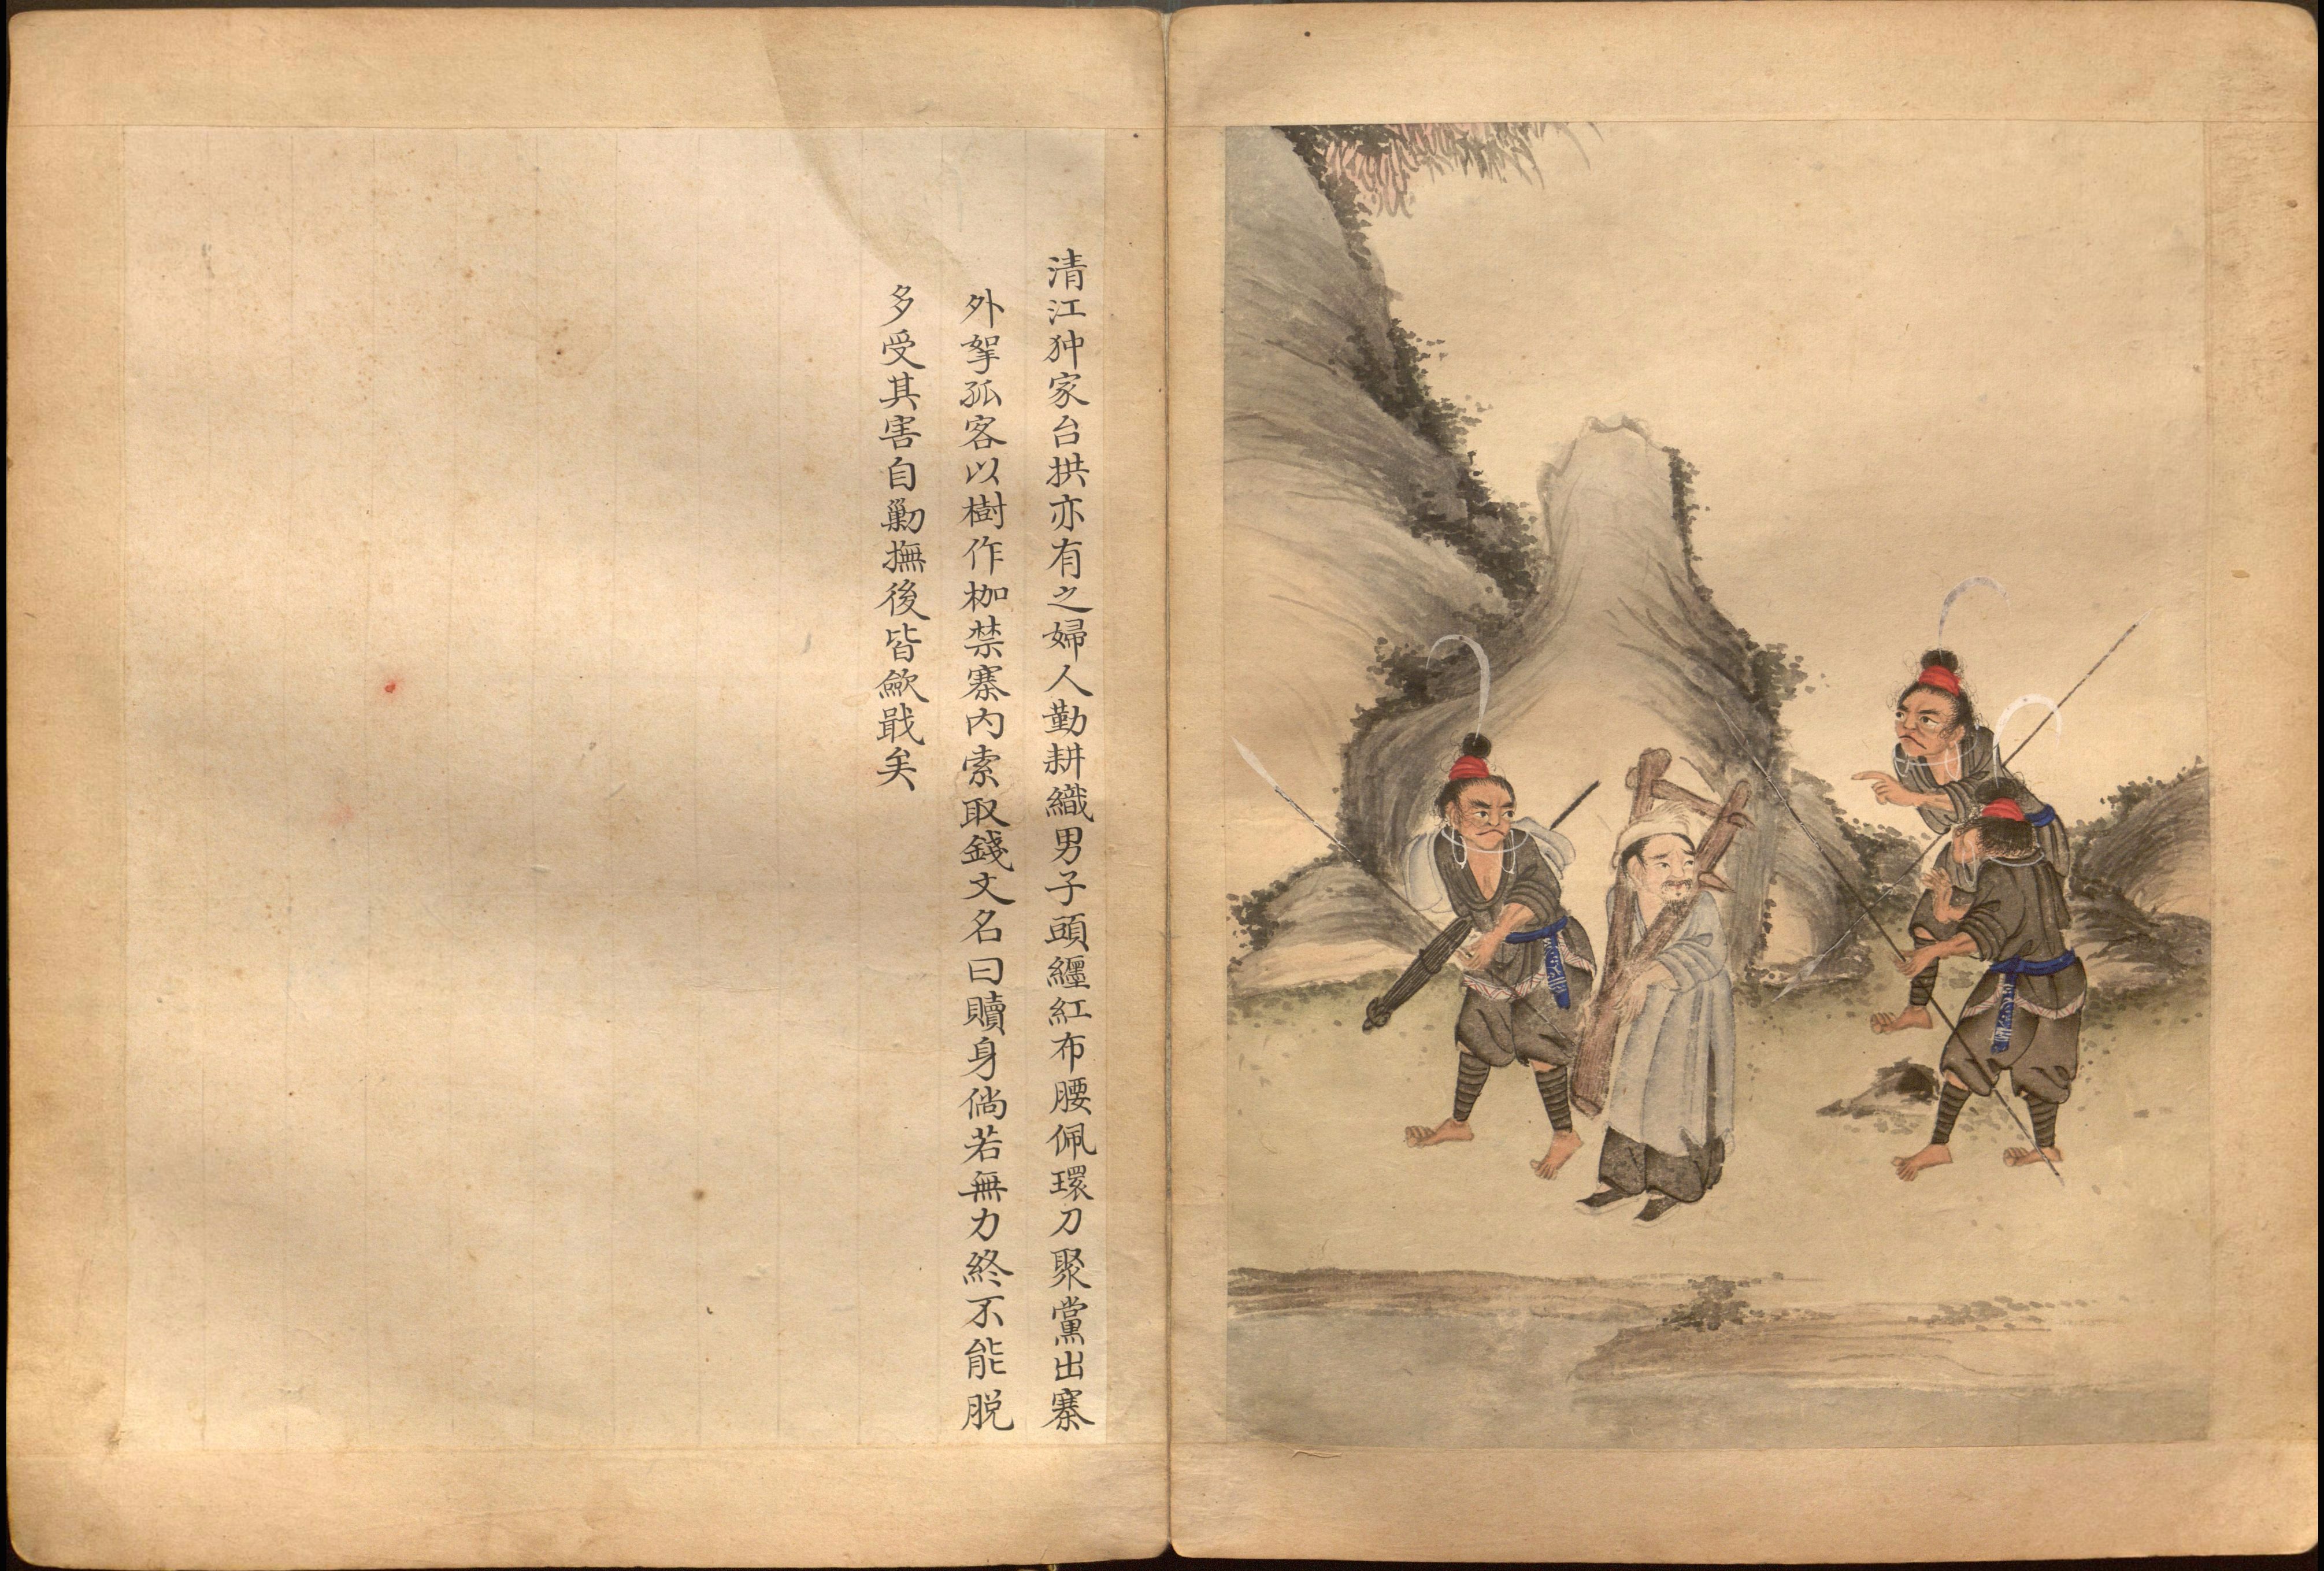 清江狆家台拱亦有之婦人勤耕織男子頭纏紅布腰佩環刀聚黨出寨
外拏孤客以樹作枷禁寨內索取錢文名曰贖身倘若無力終不能脱
多受其害自勦撫後皆歛戢矣